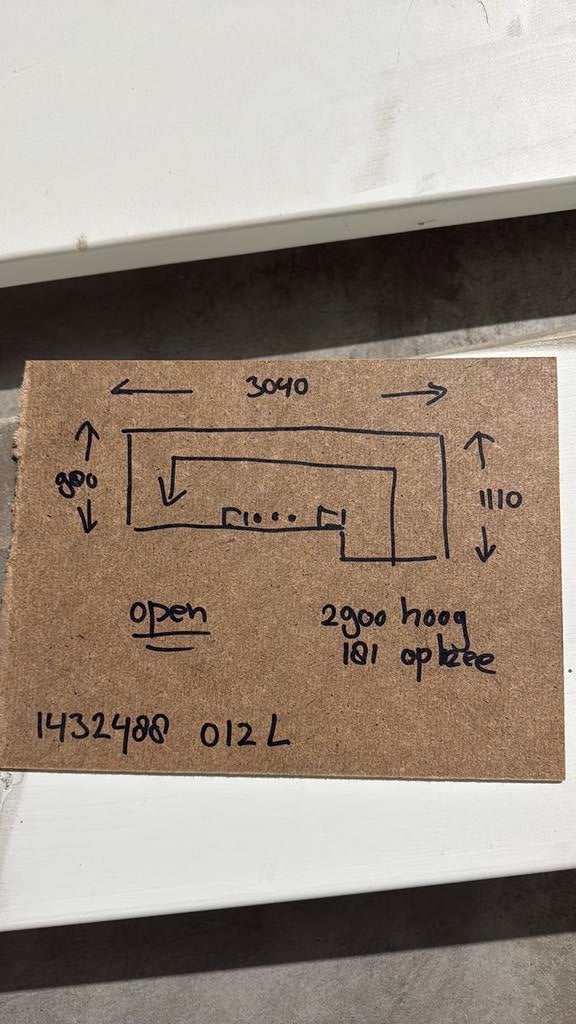 3040
900
1110
open
2900 hoog
181
1432488 012 L